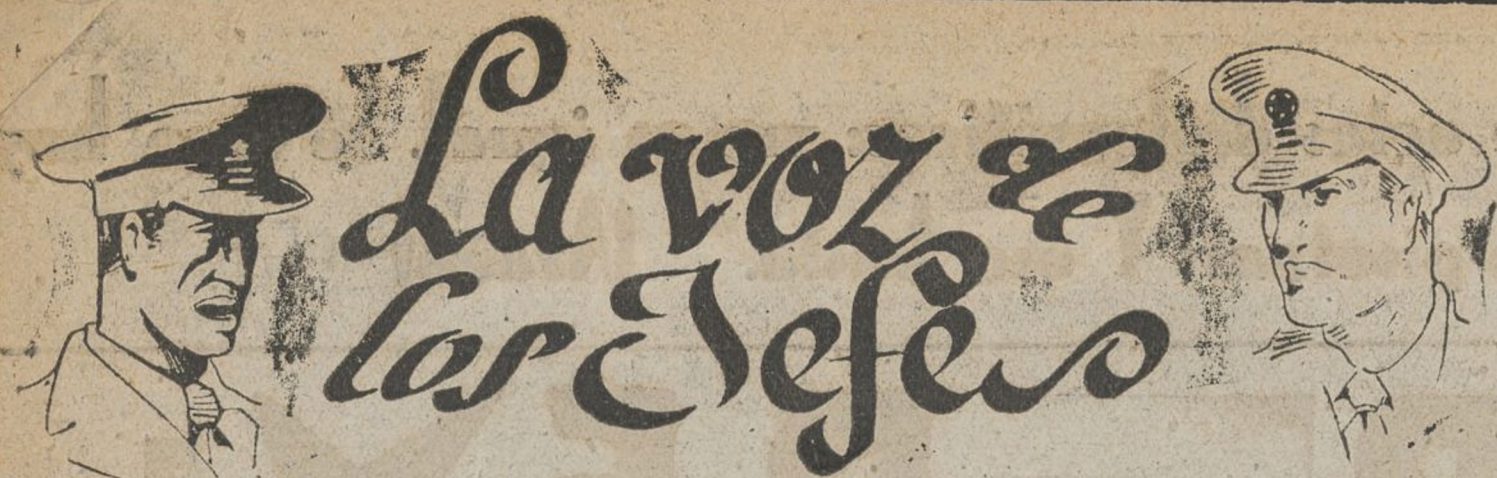 La voz de
los Jefes